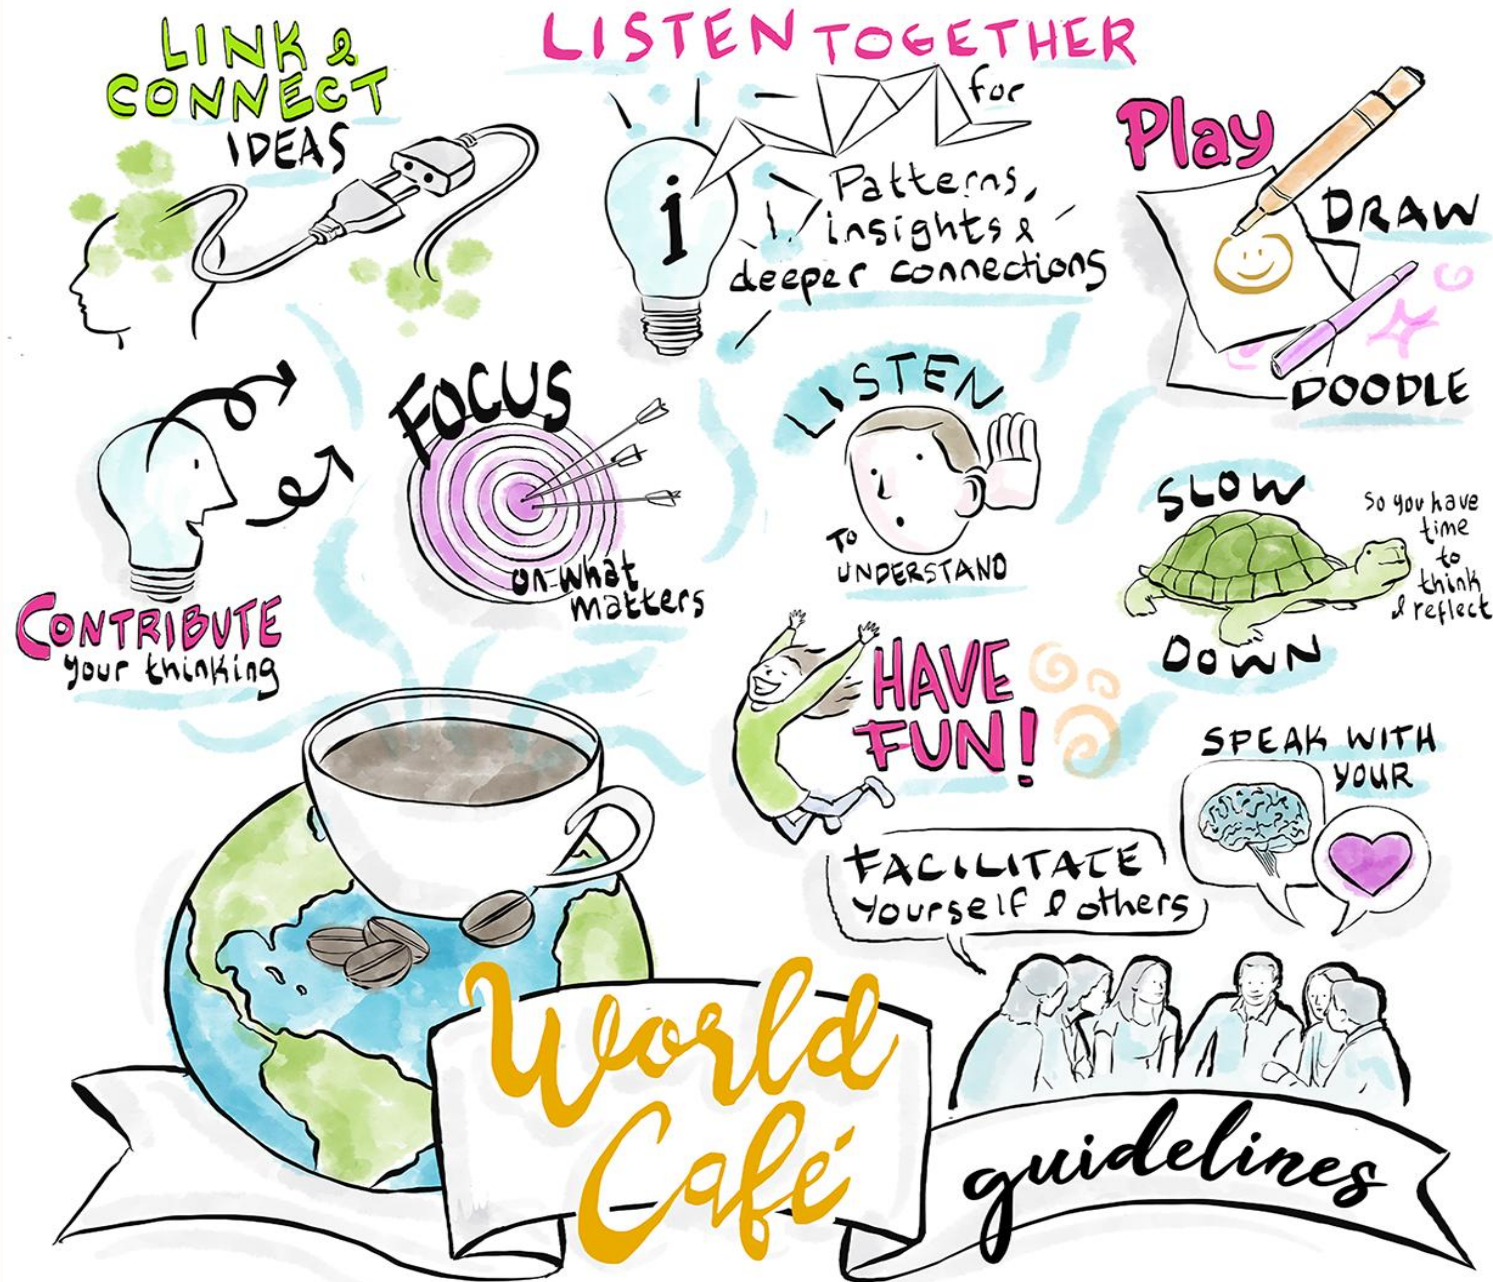 LINK &
CONNECT
IDEAS
LISTEN TOGETHER
for
Patterns,
insights &
deeper connections
i
Play
DRAW
DOODLE
CONTRIBUTE
your thinking
FOCUS
on what
matters
LISTEN
TO
UNDERSTAND
SLOW
DOWN
So you have
time
to
think
& reflect
HAVE
FUN!
SPEAK WITH
YOUR
FACILITATE
yourself & others
World
Café
guidelines